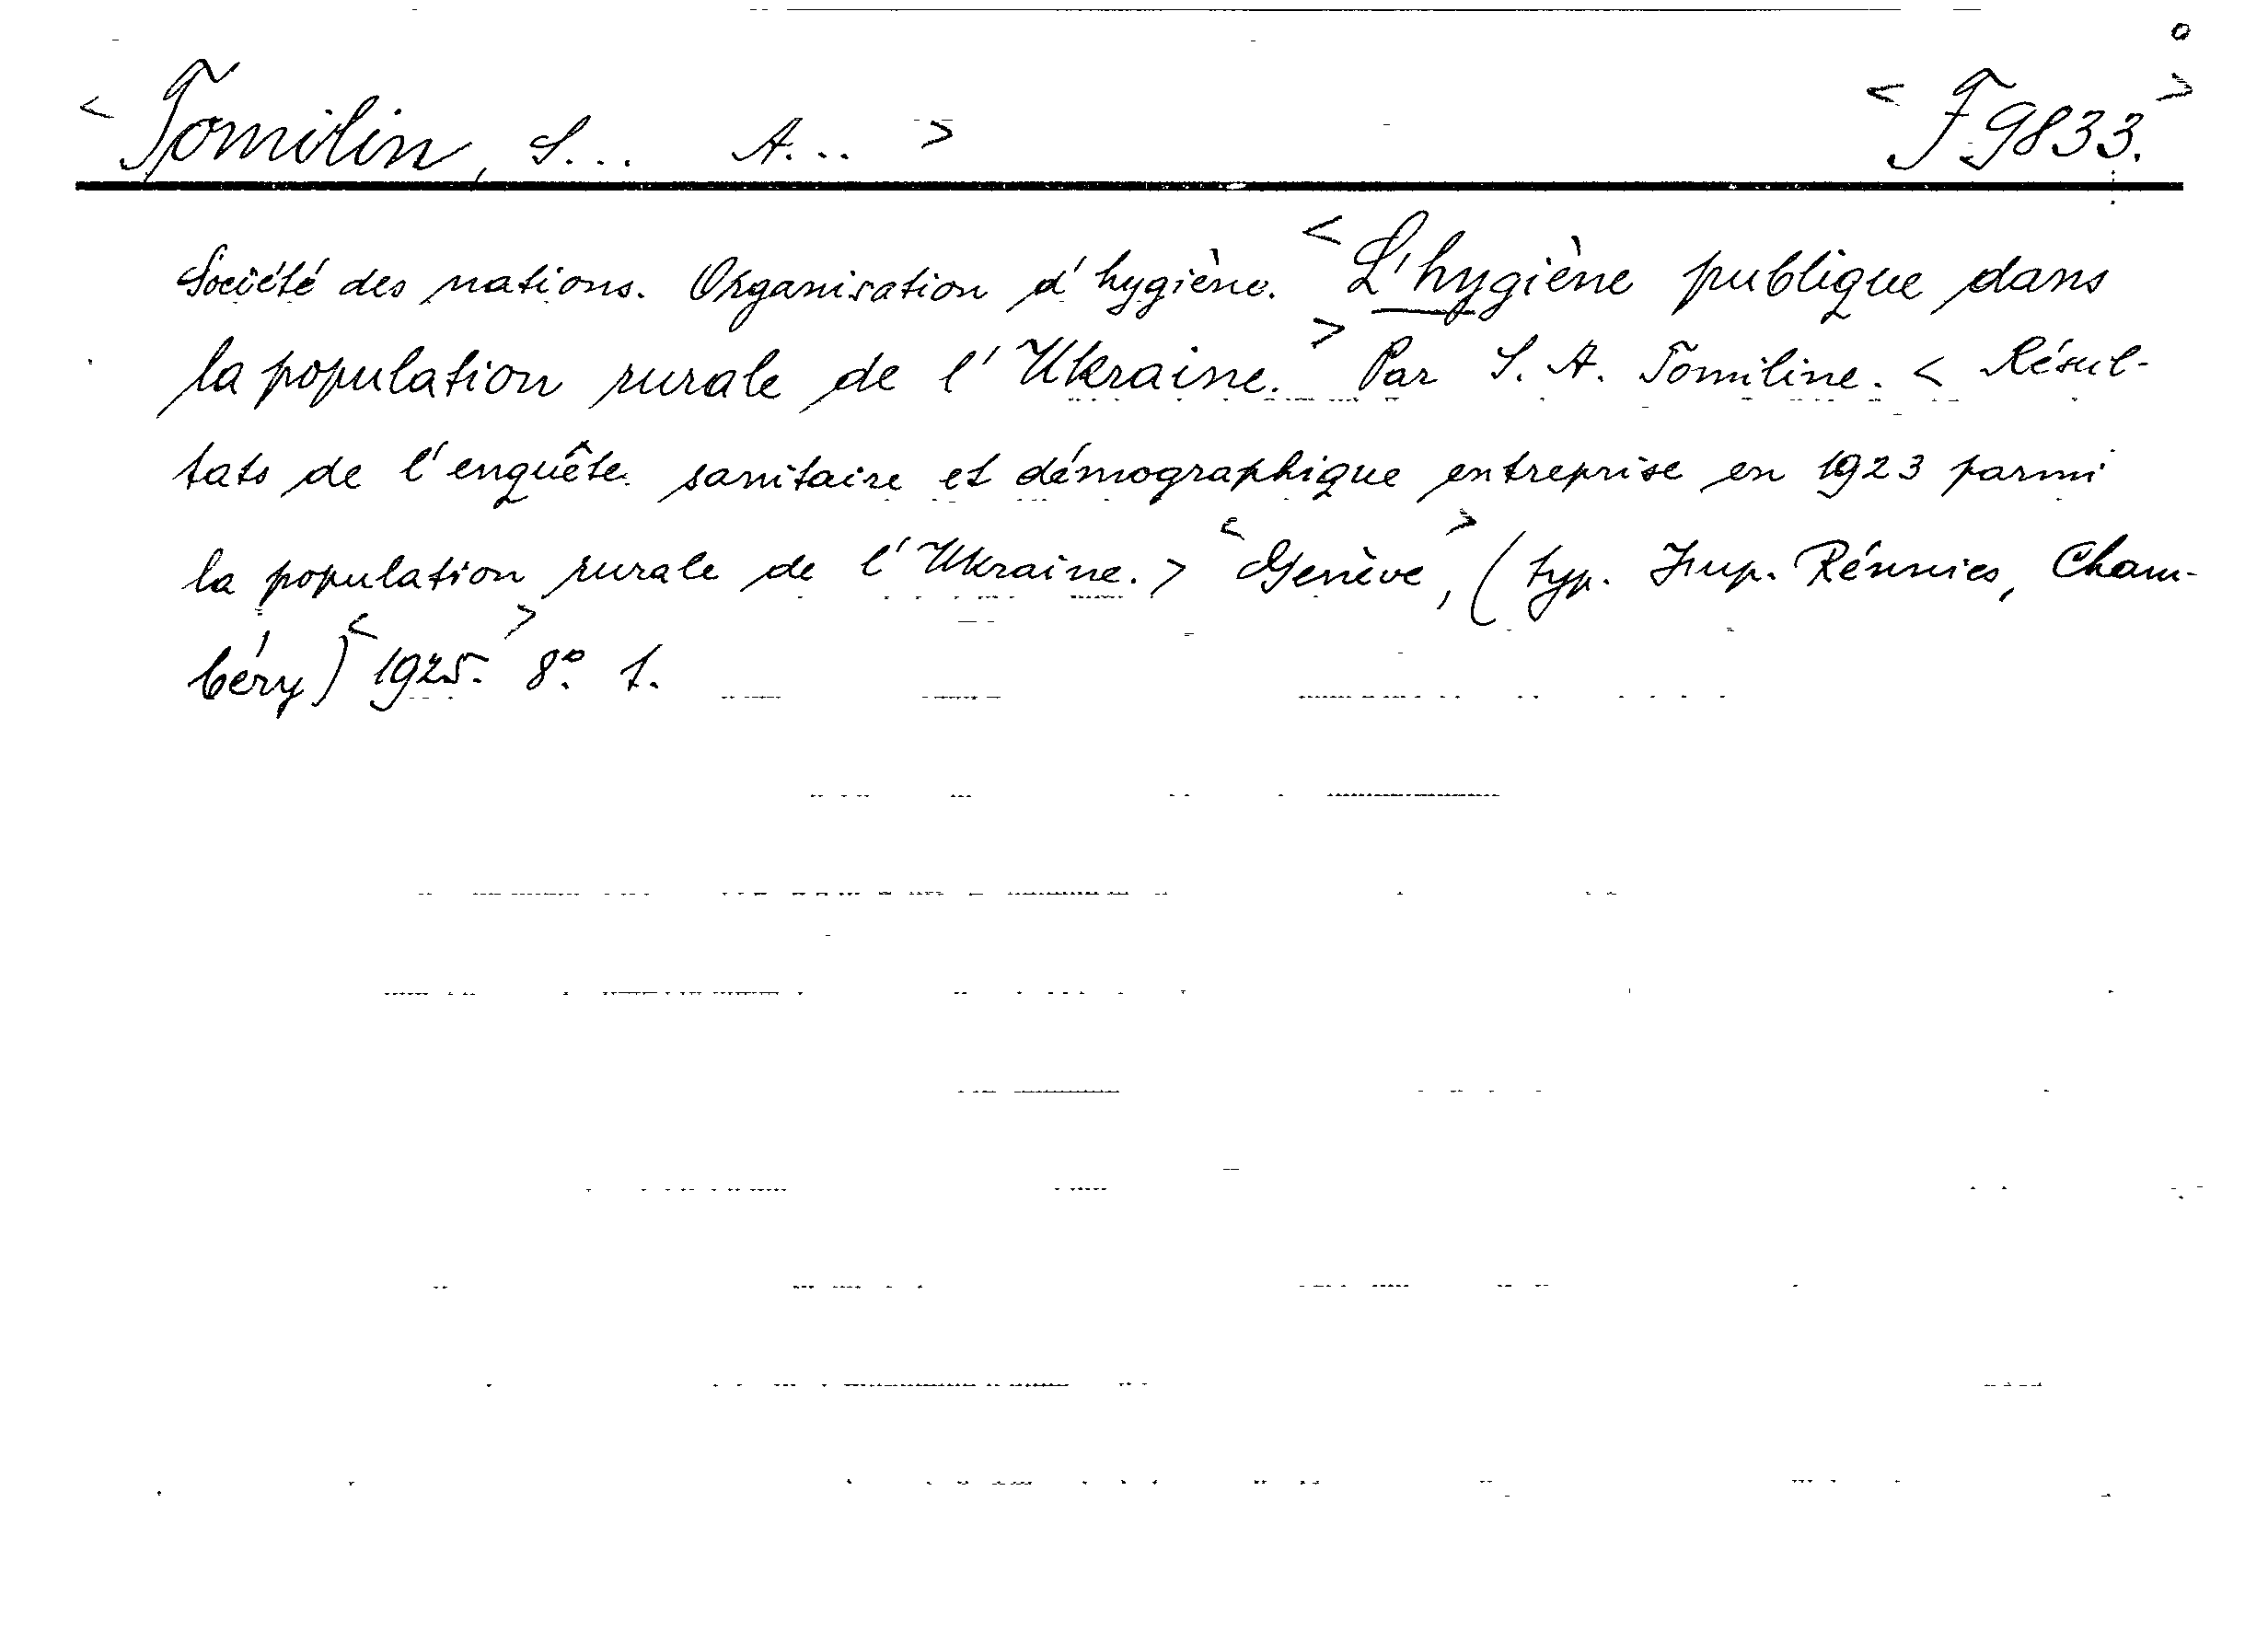 < Tomilin, S... A... > < F 9833. >
Société des nations. Organisation d'hygiène. < L'hygiène publique dans
la population rurale de l'Ukraine. > Par S. A. Tomiline. < Résul-
tats de l'enquête sanitaire et démographique entreprise en 1923 parmi
la population rurale de l'Ukraine. > < Genève >, ( typ. Imp. Réunies, Cham-
béry) < 1925. > 8°. 1.